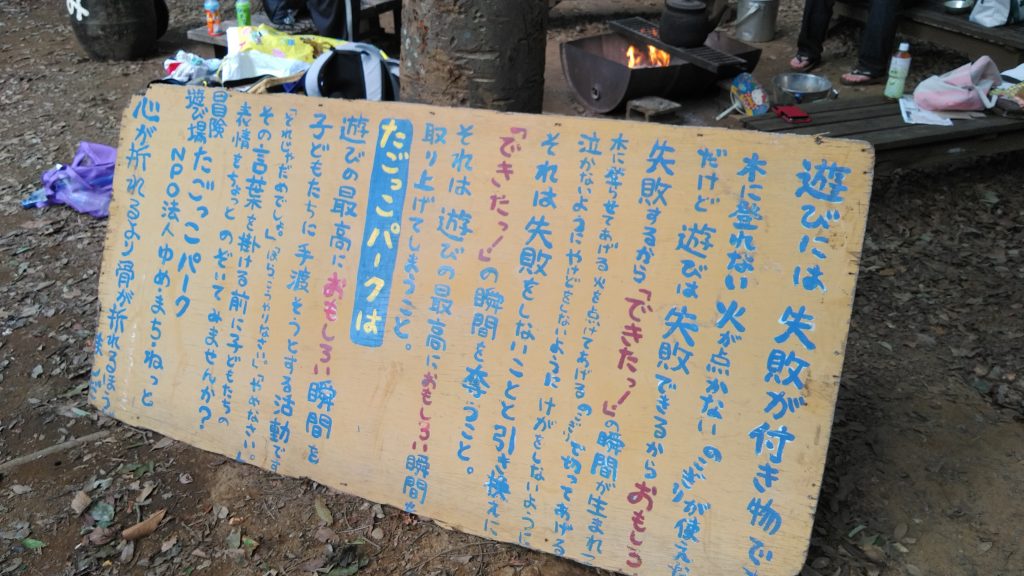 遊びには 失敗が付き物で
木に登れない 火が点かない のこぎりが使え
だけど 遊びは 失敗できるから おもしろ
失敗するから「できたっー!」の瞬間が生まれ
木に登らせてあげる 火を点けてあげる のこぎりで切ってあげる
泣かないように やけどをしないように けがをしないように
それは 失敗をしないことと引き換えに
「できたっー!」の瞬間を奪うこと。
それは 遊びの最高に おもしろい 瞬間を
取り上げてしまうこと。
たごっこパークは
遊びの最高に おもしろい 瞬間を
子どもたちに 手渡そうとする活動です
「それじゃだめでしょ」「ほらこうしなさい」「やめなさい」
その言葉を 掛ける前に 子どもたちの
表情をちょっと のぞいてみませんか?
冒険
遊び場 たごっこパーク
NPO法人 ゆめまちねっと
心が折れるより 骨が折れるほう